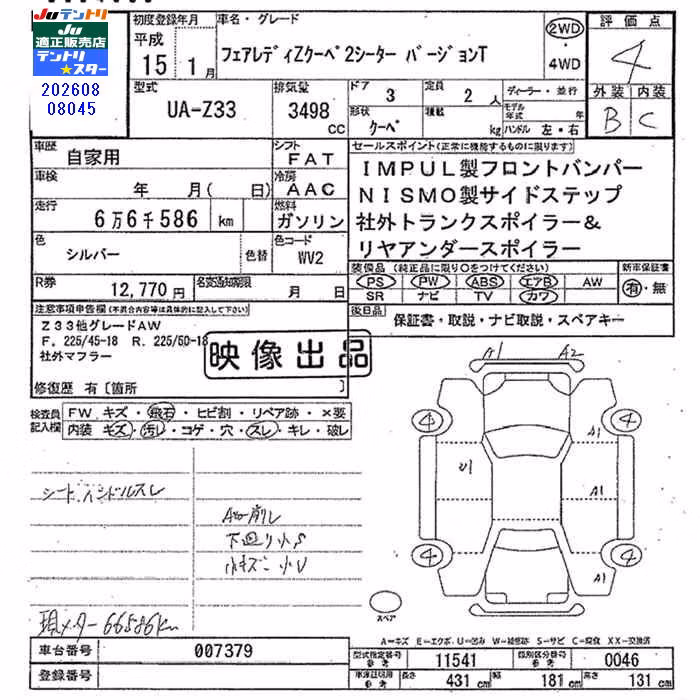 Ju テントリ
Ju
適正販売店
テントリ
★スター
202608
08045
初度登録年月
平成
15年 1月
車名・グレード
フェアレディZクーペ 2シーター バージョンT
2WD
・
4WD
評価点
4
外装 内装
B C
型式
UA-Z33
排気量
3498
cc
ドア
3
定員
2人
形状
クーペ
積載
kg
ディーラー・並行
モデル年式 年
ハンドル 左・右
車歴
自家用
シフト
FAT
車検
年 月( 日)
冷房
AAC
走行
6万6千586 km
燃料
ガソリン
色
シルバー
色替
色コード
WV2
R券
12,770円
名変通知期限
月 日
セールスポイント(正常に機能するものに限ります)
IMPUL製フロントバンパー
NISMO製サイドステップ
社外トランクスポイラー&
リヤアンダースポイラー
装備品(純正品に限り○をつけてください)
PS PW ABS エアB AW
SR ナビ TV カワ
新車保証書
有・無
後日品
保証書・取説・ナビ取説・スペアキー
注意事項申告欄(不具合内容等は具体的に記入して下さい)
Z33他グレードAW
F．225/45-18 R．225/50-18
社外マフラー
映像出品
修復歴 有〔箇所 〕
検査員
記入欄
FW キズ・飛石・ヒビ割・リペア跡・×要
内装 キズ・汚れ・コゲ・穴・スレ・キレ・破レ
シート、ハンドルスレ
下回り小S
小キズ 小U
現メーター66586km
A1 A2
4 4
A1
U1
A1
4 4
A1
スペア
A＝キズ E＝エクボ U＝凹み W＝補修跡 S＝サビ C＝腐食 XX＝交換済
車台番号
007379
登録番号
型式指定番号
参考
11541
類別区分番号
参考
0046
車庫証明用
参考
長さ
431 cm
幅
181 cm
高さ
131 cm